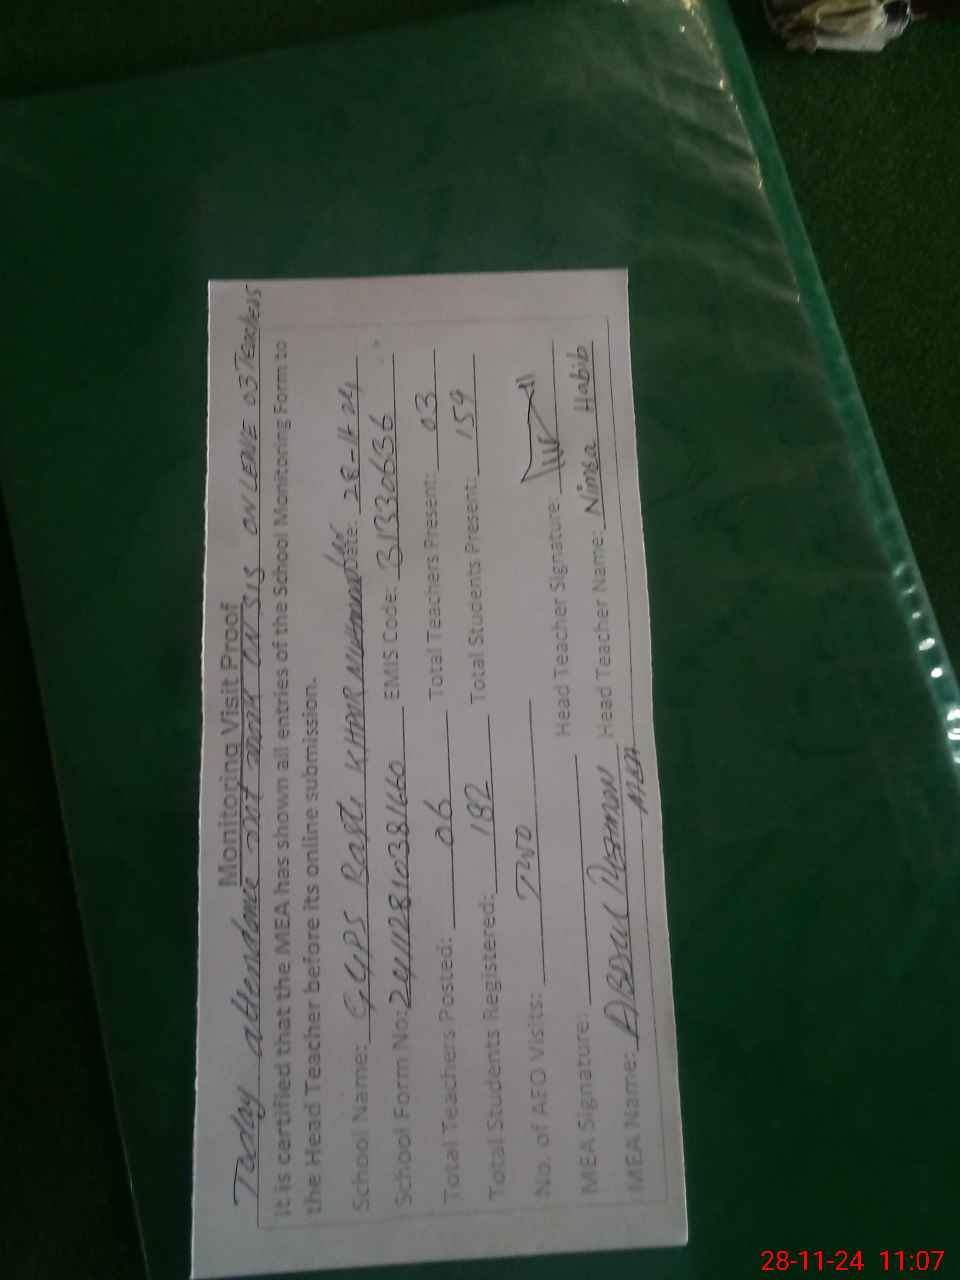 Monitoring Visit Proof
Today attendance not mark on SIS ON LEAVE 03 Teachers
It is certified that the MEA has shown all entries of the School Monitoring Form to
the Head Teacher before its online submission.
School Name: GGPS Basti KHAIR Date: 28-11-24
School Form No: EMIS Code: 31330636
Total Teachers Posted: 06 Total Teachers Present: 03
Total Students Registered: 182 Total Students Present: 159
No. of AEO Visits: TWO
MEA Signature: Head Teacher Signature:
MEA Name: ABDUL REHMAN Head Teacher Name: Nimra Habib
MEA
28-11-24 11:07